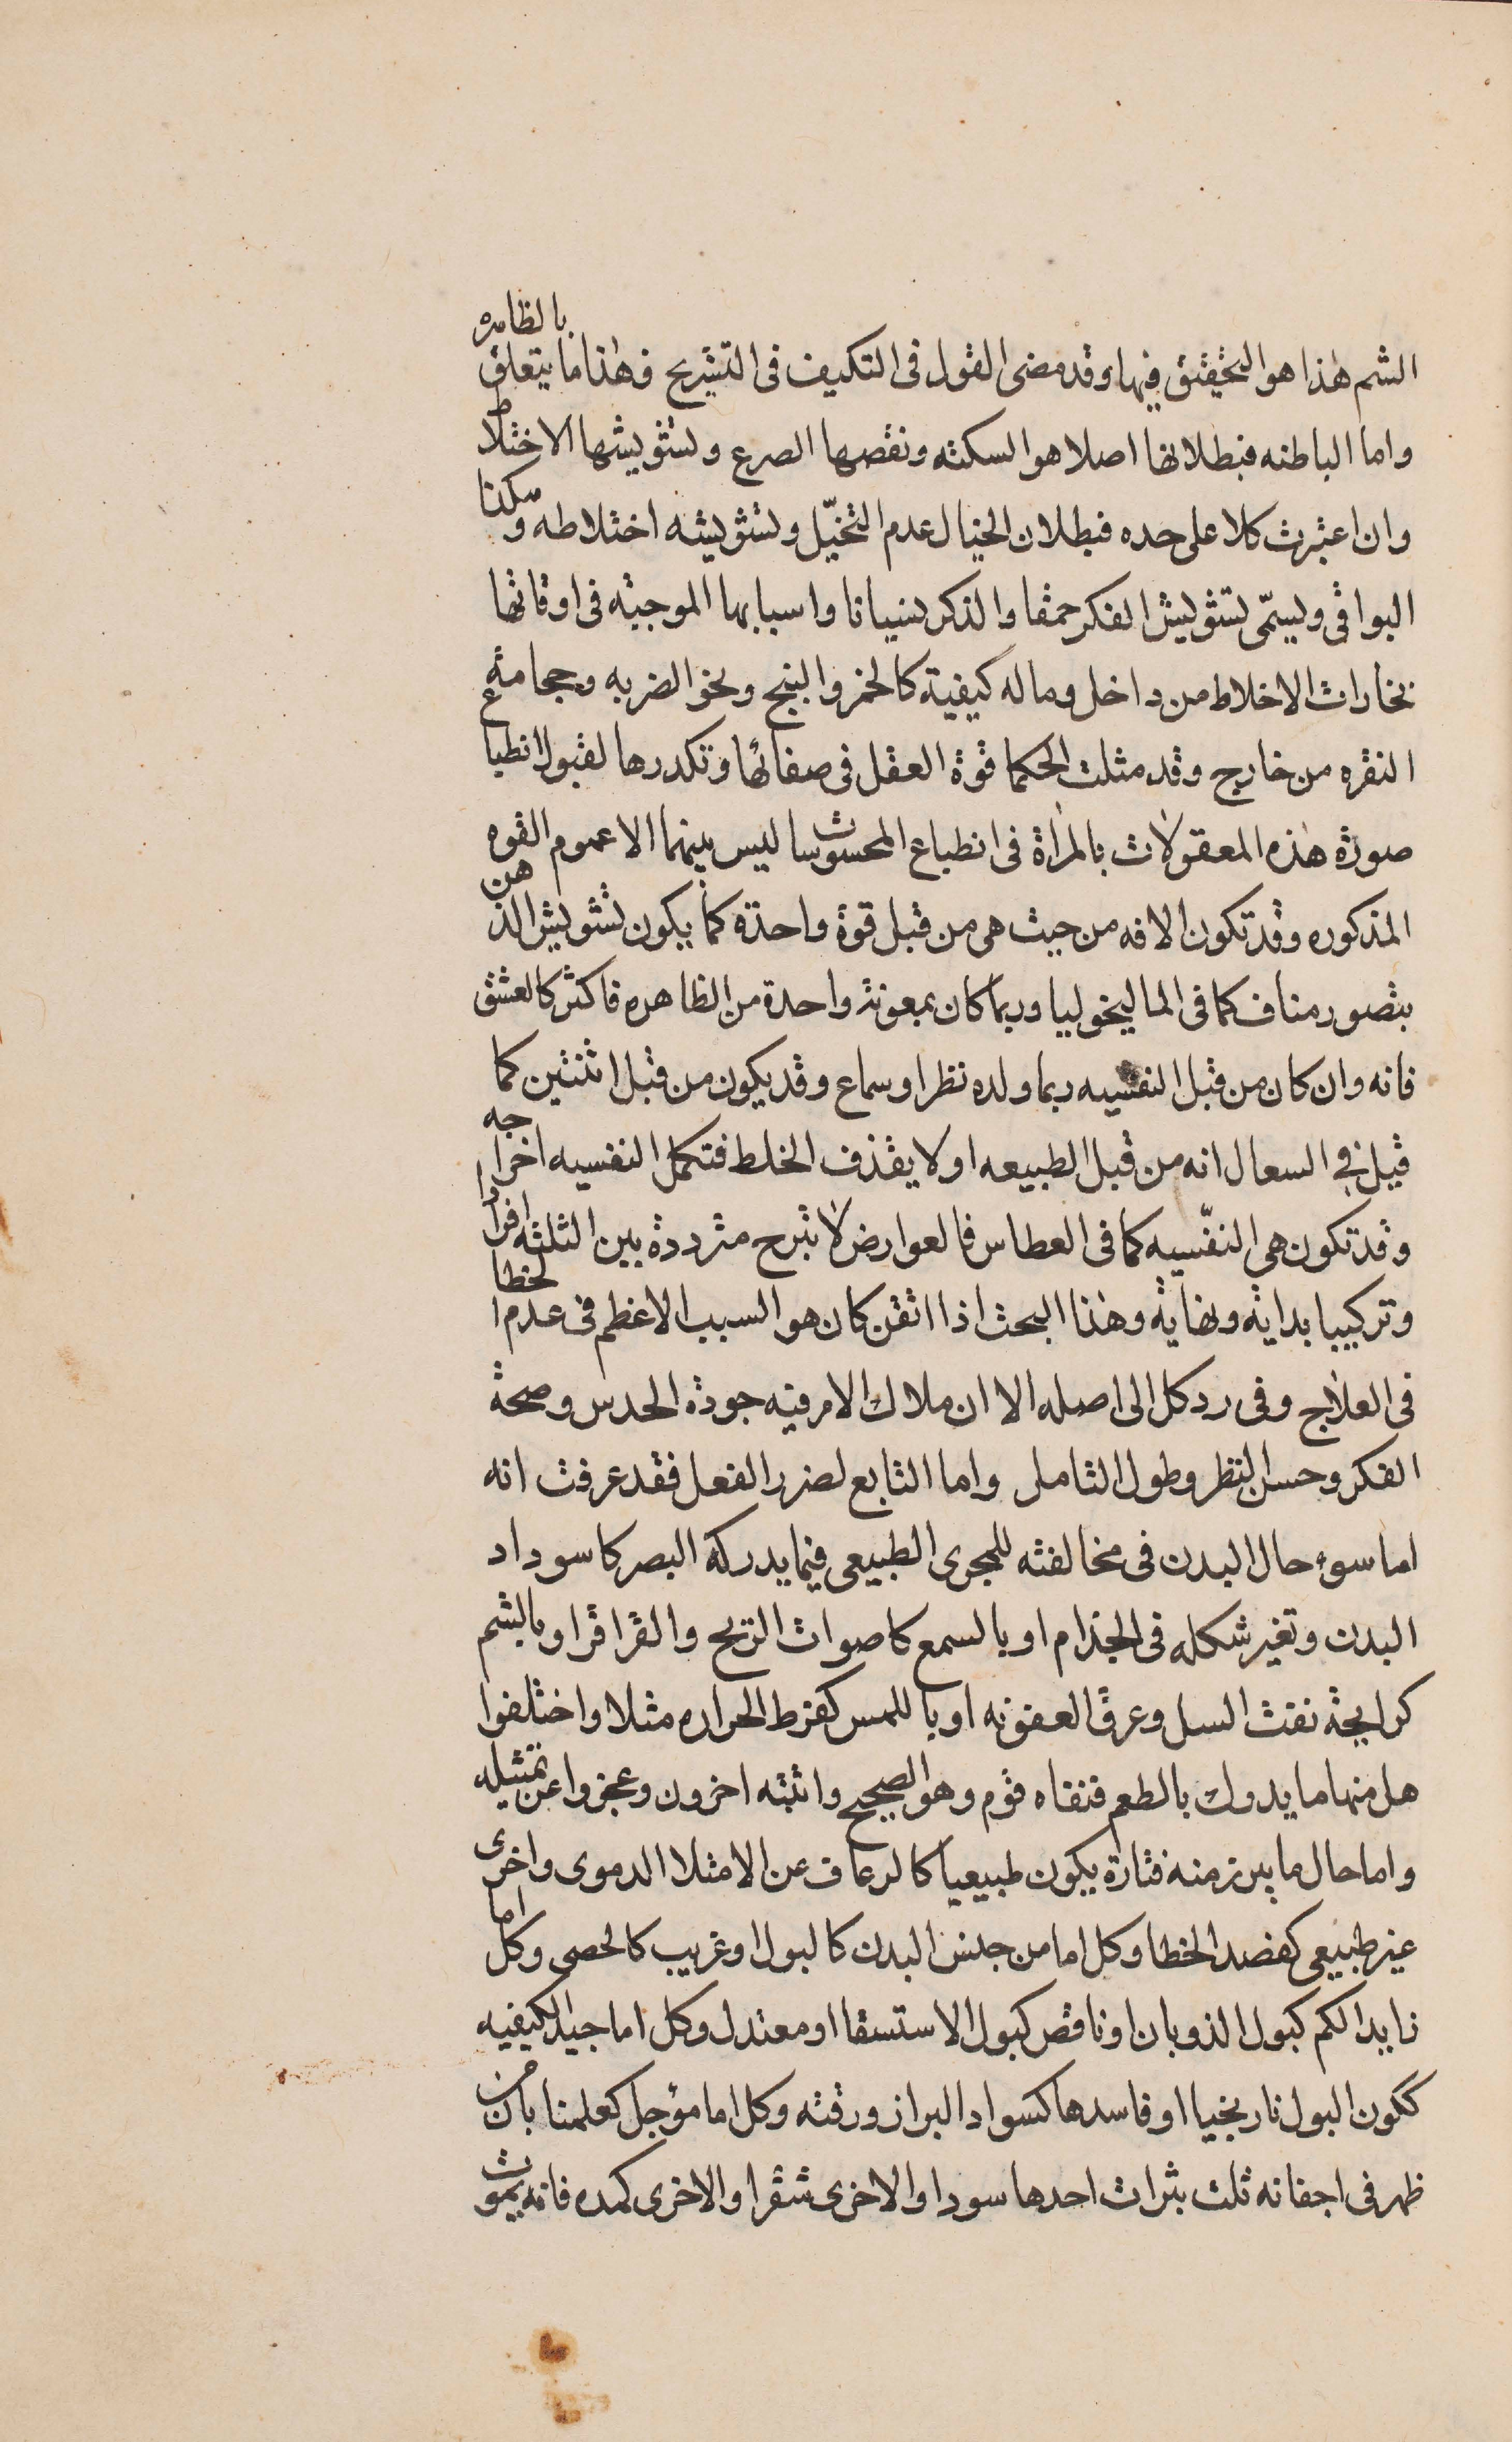 الشم هذا هو التحقيق فيها وقد مضى القول فى التكيف فى التشريح فهذا ما يتعلق بالظاهره
واما الباطنه فبطلانها اصلا هو السكته ونقصها الصرع وتشويشها الاختلاط
وان اعتبرت كلا على حده فبطلان الخيال عدم التخيّل وتشويشه اختلاطه وهكذا
البواقى ويسمّى تشويش الفكر حمقا والذكر نسيانا واسبابها الموجبه فى اوقاتها
بخارات الاخلاط من داخل وما له كيفية كالخمر والبنج ونحو الضربه وحجامة
النقره من خارج وقد مثلت الحكما قوة العقل فى صفائها وتكدرها لقبول انطباع
صورة هذه المعقولات بالمراة فى انطباع المحسوسات ليس بينهما الا عموم القوه
المذكوره وقد تكون الافه من حيث هى من قبل قوة واحدة كما يكون تشويش الذهن
بتصور مناف كما فى الماليخوليا وربما كان بمعونة واحدة من الظاهره فاكثر كالعشق
فانه وان كان من قبل النفسيه ربما ولده نظر او سماع وقد يكون من قبل اثنتين كما
قيل فى السعال انه من قبل الطبيعه اولا يقذف الخلط فتكمل النفسيه اخراجه
وقد تكون هى النفّسيه كما فى العطاس فالعوارض لا تبرح مترددة بين الثلثه افرادا
وتركيبا بداية ونهاية وهذا البحث اذا اتقن كان هو السبب الاعظم فى عدم الخطا
فى العلاج وفى رد كل الى اصله الا ان ملاك الامر فيه جودة الحدس وصحة
الفكر وحسن النظر وطول التامل واما التابع لضرر الفعل فقد عرفت انه
اما سوء حال البدن فى مخالفته للمجرى الطبيعى فيما يدركه البصر كاسوداد
البدن وتغير شكله فى الجذام او بالسمع كاصوات الريح والقراقر او بالشم
كرايحة نفث السل وعرق العفونه او باللمس كفرط الحراره مثلا واختلفوا
هل منها ما يدرك بالطعم فنفاه قوم وهو الصحيح واثبته اخرون وعجزوا عن تمثيله
واما حال ما يبرز منه فتارة يكون طبيعيا كالرعاف عن الامتلا الدموى واخرى
غير طبيعى كفصد الخطا وكل اما من جنس البدن كالبول او غريب كالحصى وكل اما
زايد الكم كبول الذوبان او ناقص كبول الاستسقا او معتدل وكل اما جيد الكيفيه
ككون البول نارنجيا او فاسدها كسواد البراز ورقته وكل اما مؤجل كعلمنا بان من
ظهر فى اجفانه ثلث بثرات احدها سودا والاخرى شقرا والاخرى كمده فانه يموت